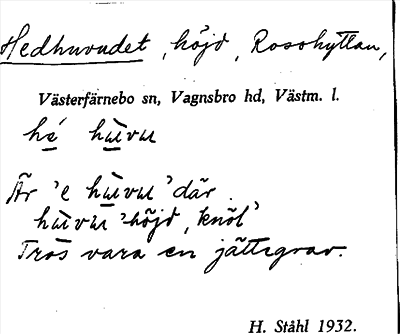 Hedhuvudet, höjd, Rosshyttan,
Västerfärnebo sn, Vagnsbro hd, Västm. l.
hé hùvu
Är 'e hùvu' där
hùvu 'höjd, knöl'
Tros vara en jättegrav.
H. Ståhl 1932.